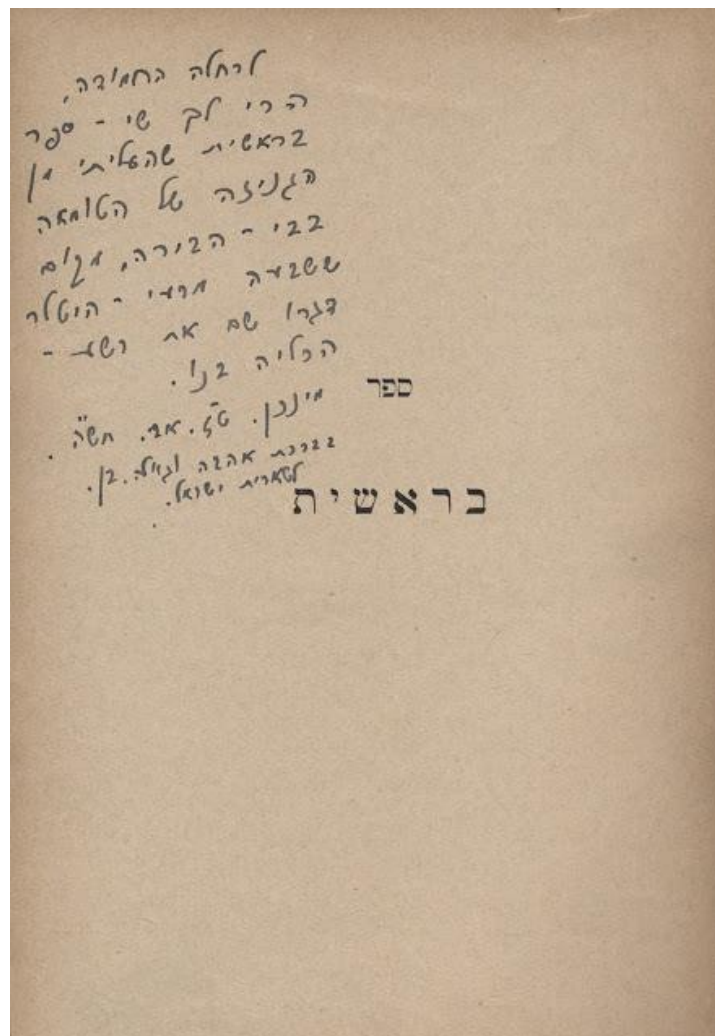 לרחלה החמודה,
הרי לך שי - ספר
בראשית שהעליתי מן
הגניזה של הטומאה
בבי - הבירה, מקום
ששבעה מרעי - היטלר
דגרו שם את רשע -
הכליה בנו.
מינכן. ט"ז. אב. תש"ה.
בברכת אהבה וגאולה. בן.
לשארית ישראל.
ספר
בראשית